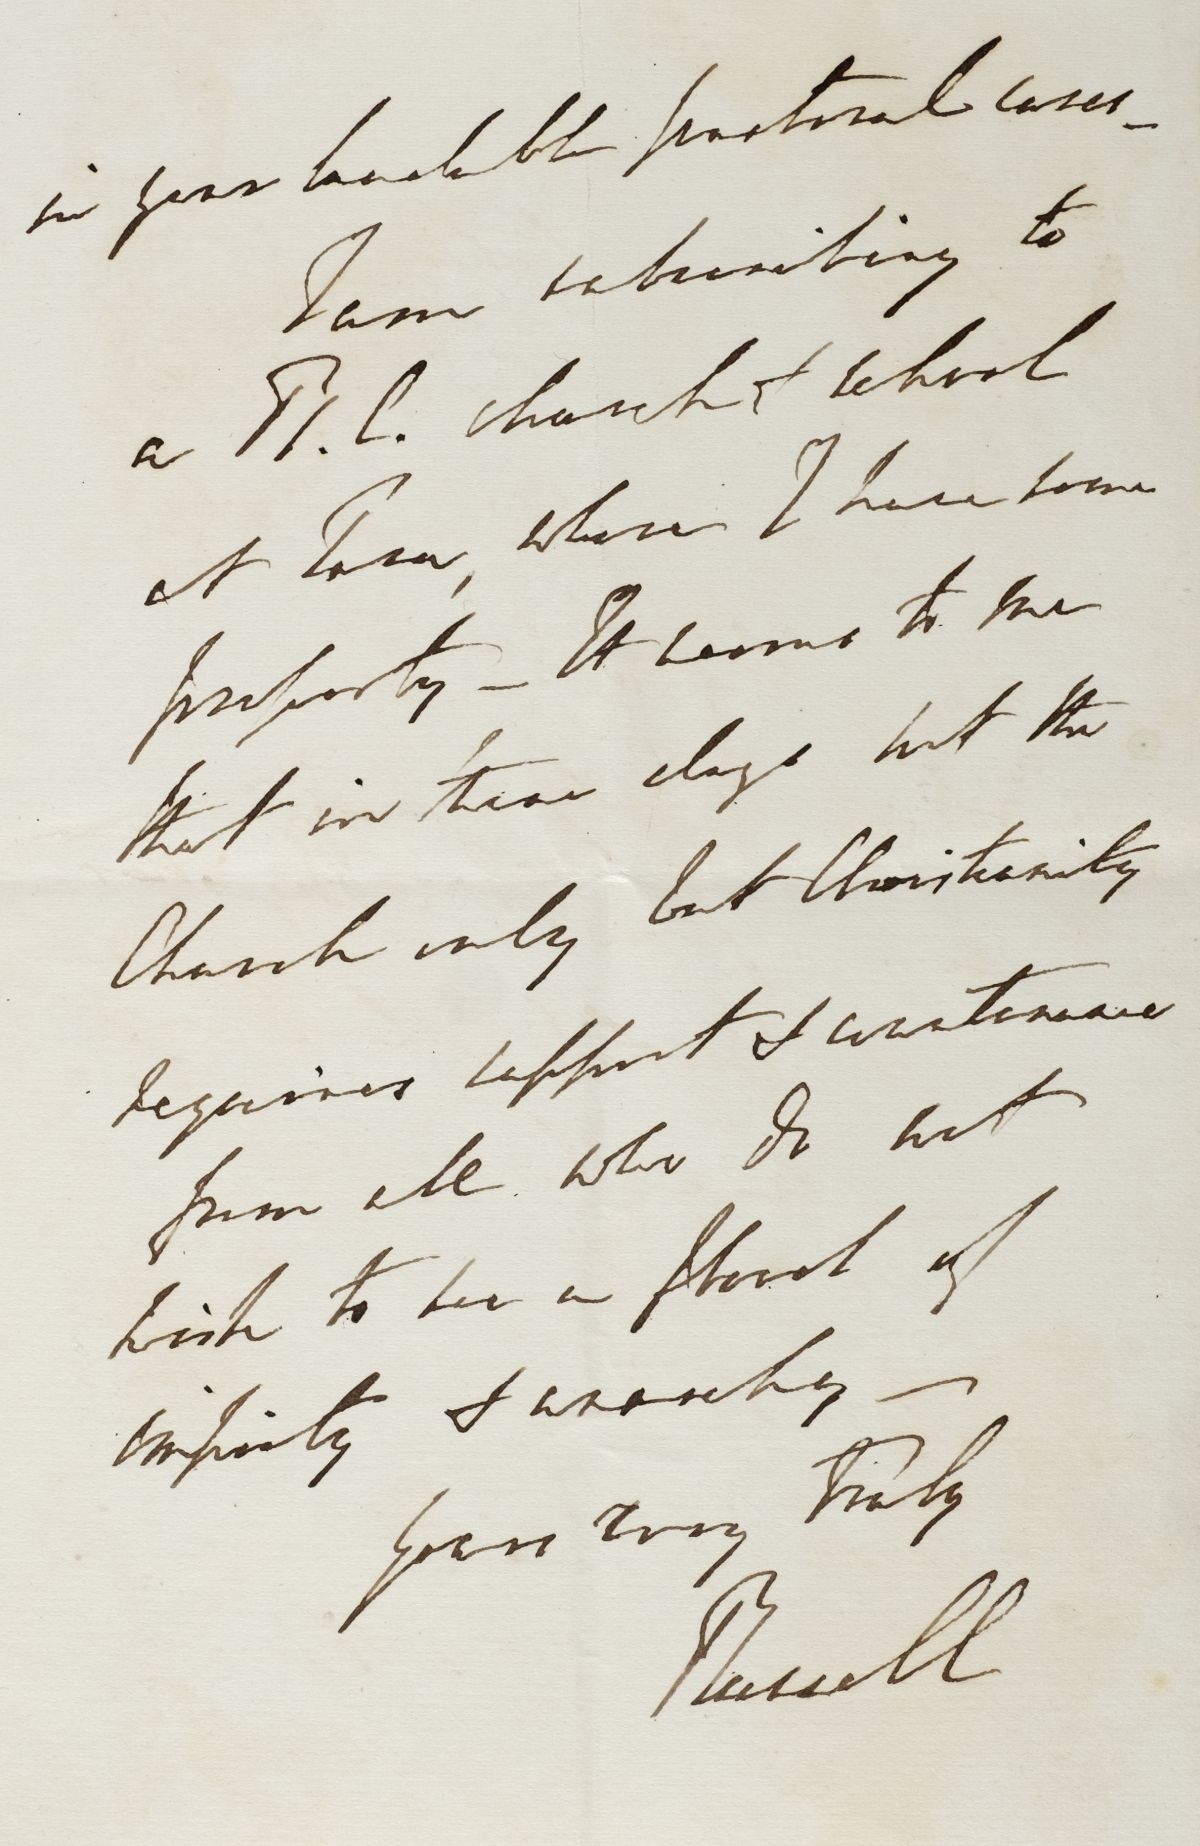 in your laudable pastoral cares –
I am subscribing to
a R. C. church & school
at where I have some
property – It seems to me
that in these days not the
Church only but Christianity
requires support & countenance
from all who do not
wish to see a flood of
impiety & anarchy –
yours very truly
Russell